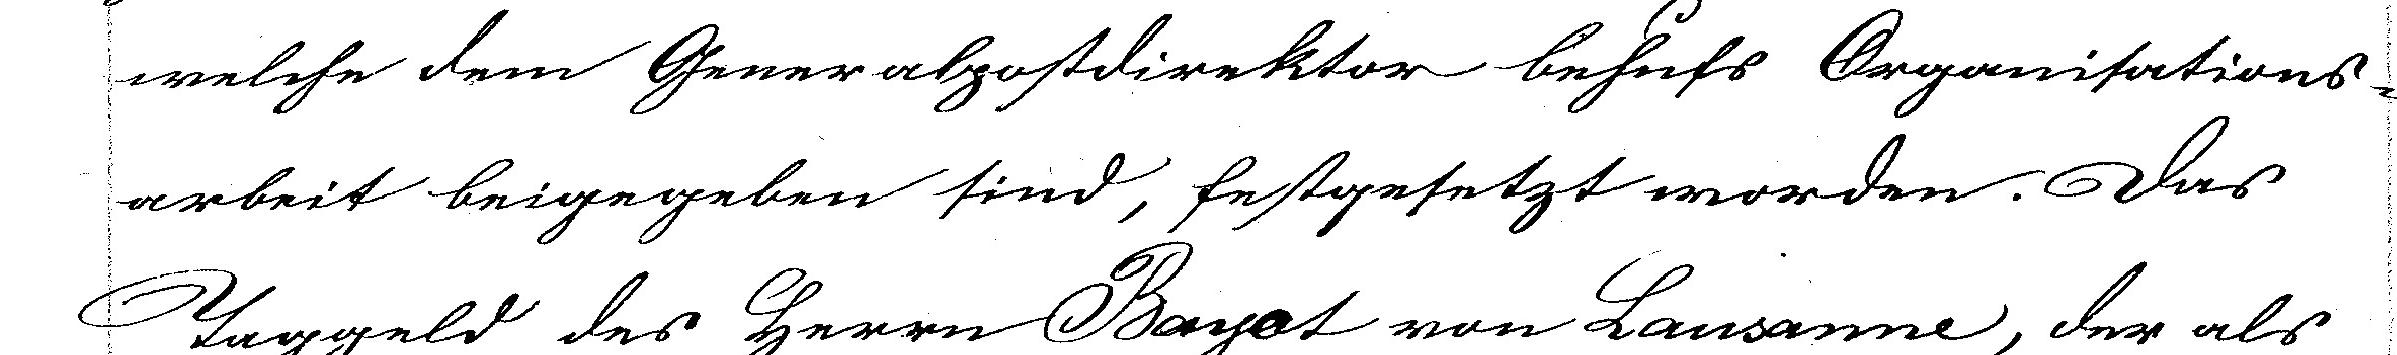 welche dem Generalpostdirektor behufs Organisations-
arbeit beigegeben sind, festgesetzt worden. Das
Taggeld des Herrn Bayot von Lausanne, der als